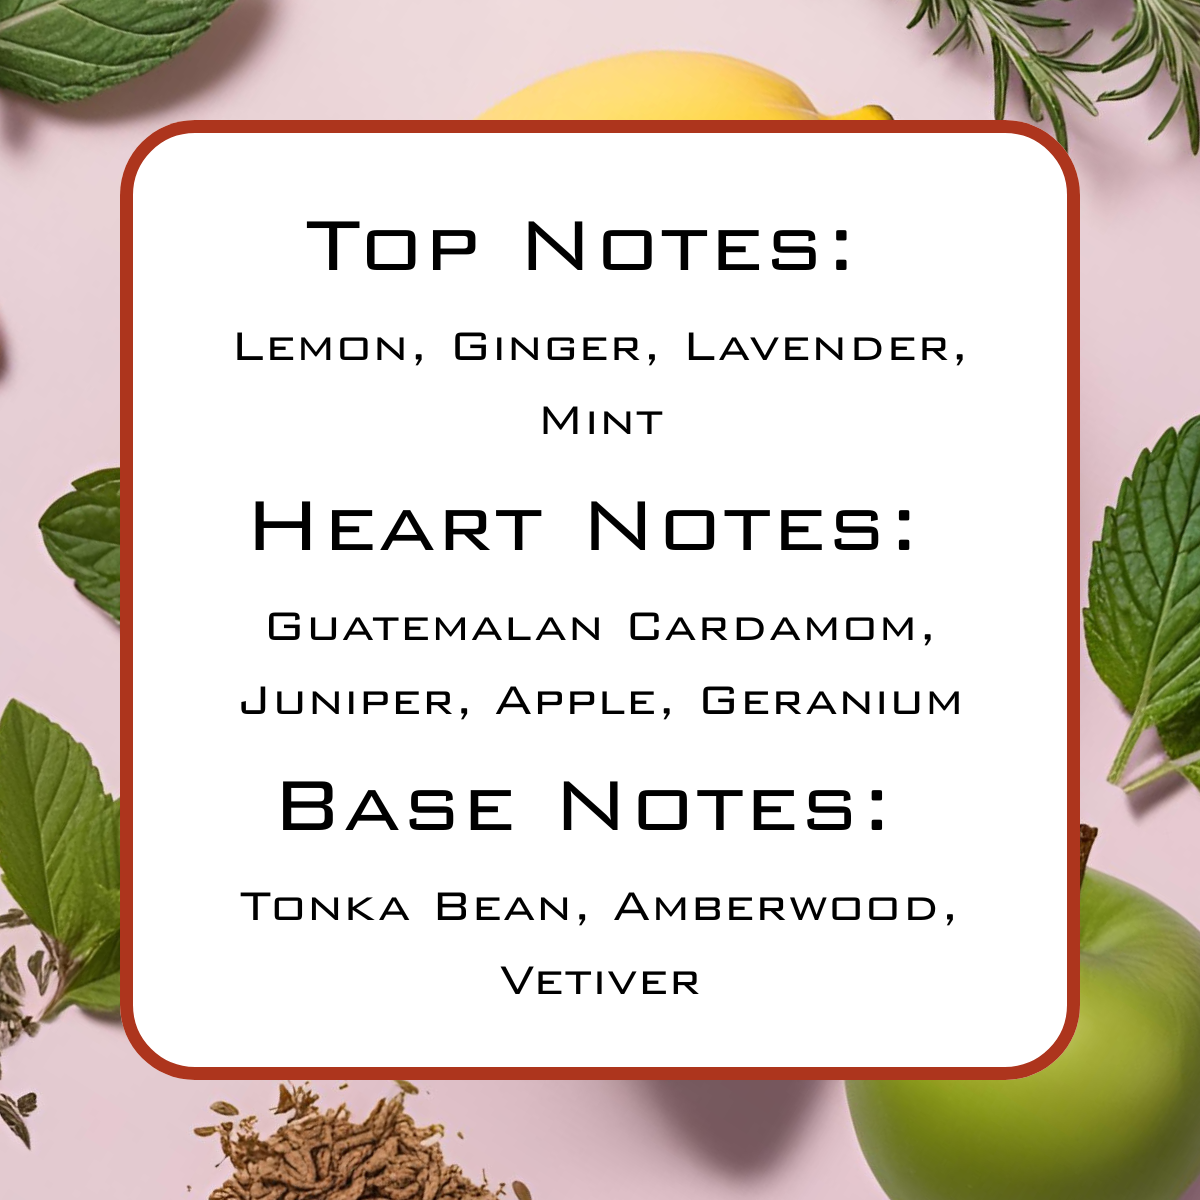 Top Notes:
Lemon, Ginger, Lavender,
Mint
Heart Notes:
Guatemalan Cardamom,
Juniper, Apple, Geranium
Base Notes:
Tonka Bean, Amberwood,
Vetiver